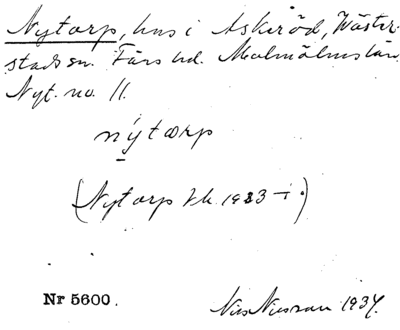 Nytorp, hus i Askeröd, Väster-
stads sn. Färs hd. Malmöhus län.
Nyt. no. 11.
nýtorp
(Nytorp Jb. 1923 – .)
Nr 5600.
Nils Nilsson 1934.